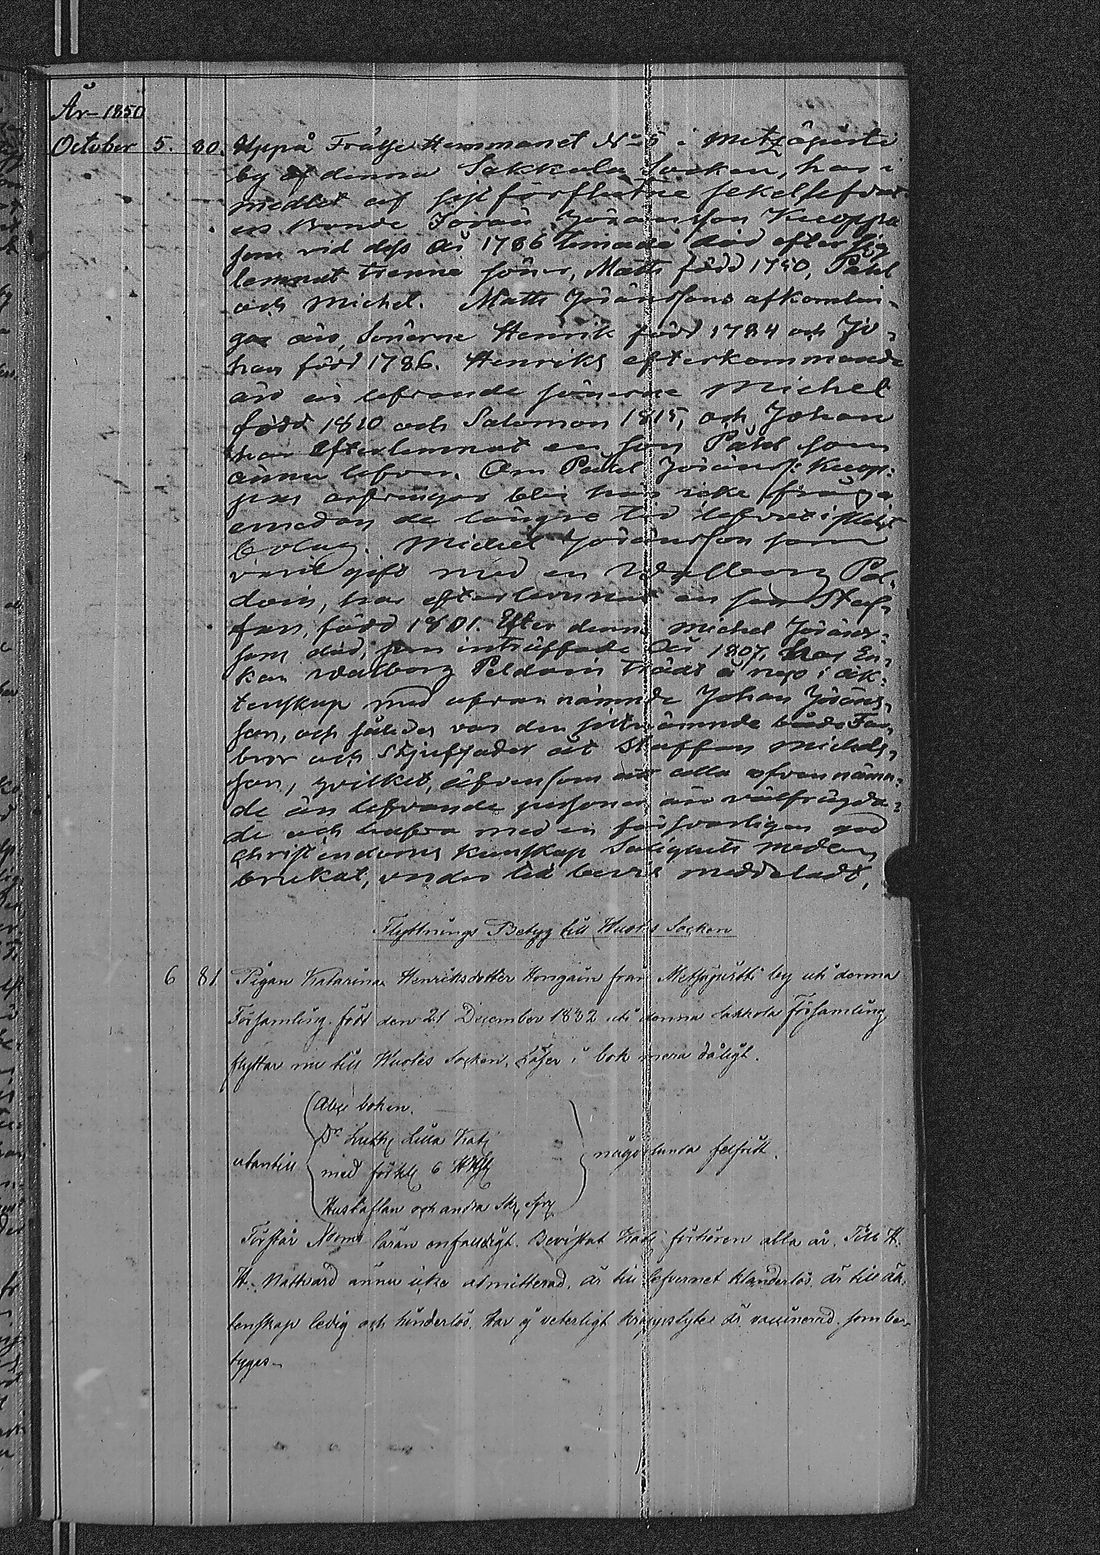 År 1850
October 5. 80. Uppå Frälse Hemmanet No 5 i Metzäpirti
by af denna Sakkola Socken, har i
medlet af sist förflutne sekel lefvat
en Bonde Jöran Jöransson Kuoppa
som vid dess År 1786 timade död efter sig
lemnat trenne söner, Matts född 1750, Påhl
och Michel. Matts Jöranssons afkomlin-
gar äro, Sönerne Henrik född 1784 och Jo-
han född 1786. Henriks efterkommande
äro än lefvande sönerne Michel
född 1820 och Salomon 1815, och Johan
har efterlemnat en son Påhl som
ännu lefver. Om Påhl Jöranss: Kuop-
pas arfvingar blir här icke fråga
emedan de längre tid lefvat i skildt
bolag. Michel Jöransson som
varit gift med en Walborg Pel-
doin, har efterlemnat en son Staf-
fan, född 1801. Efter denne Michel Jörans-
sons död, som inträffade År 1807, har En-
kan Walborg Peldoin trädt å nyo i äk-
tenskap med ofvannämnde Johan Jörans-
son, och således var den sistnämnde både Far-
bror och Stjuffader åt Staffan Michels-
son, hvilket, äfvensom att alla ofvannämn-
de än lefvande personer äro välfrägda-
de och hafva med en försvarligen god
christendoms kunskap Salighets medlen
brukat, varder till bevis meddeladt,
Flyttnings Betyg till Wuoles Socken
6 81 Pigan Katarina Henriksdotter Hongain från Metzäpirtti by uti denna
Församling, född den 21 December 1832 uti denna Sakkola Församling
flyttar nu till Wuoles Socken. Läser i bok mera dåligt.
Abc boken.
Dr Luth: Lilla Kat:
utantill med förkl: 6 H Hst någorlunda felfritt.
Hustaflan och andra Sk: Spr:
Förstår Noms läran enfalldigt. Bevistat Kat: förhören alla år. Till H.
H. Nattvard ännu icke admitterad, är till lefvernet klanderlös, är till äk-
tenskap ledig och hinderlös. Har ej veterligt är vaccinerad, som be-
tygas